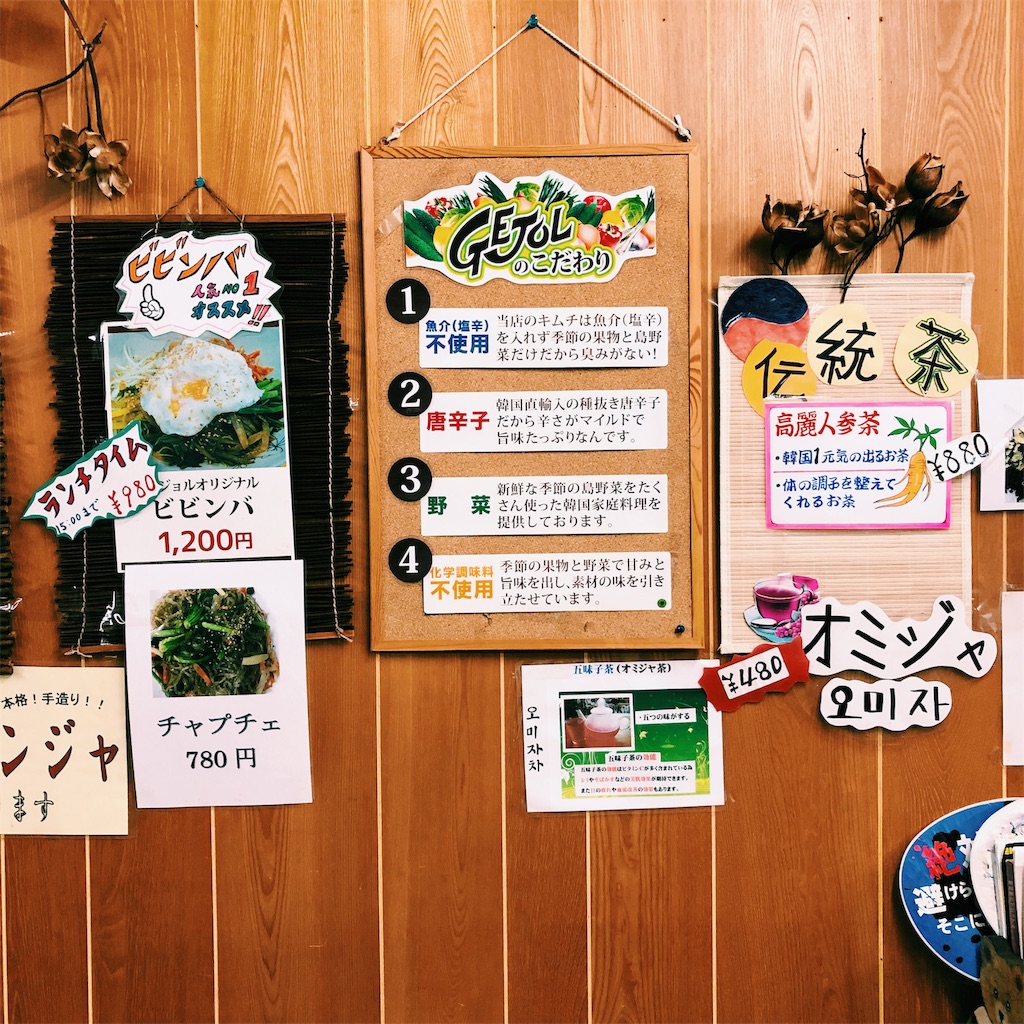 ビビンバ
人気NO1
オススメ!!
ランチタイム
15:00まで ¥980
ジョルオリジナル
ビビンバ
1,200円
チャプチェ
780 円
本格!手造り!!
ンジャ
ます
GEJOL
のこだわり
1
魚介(塩辛)
不使用
当店のキムチは魚介(塩辛)
を入れず季節の果物と島野
菜だけだから臭みがない!
2
唐辛子
韓国直輸入の種抜き唐辛子
だから辛さがマイルドで
旨味たっぷりなんです。
3
野菜
新鮮な季節の島野菜をたく
さん使った韓国家庭料理を
提供しております。
4
化学調味料
不使用
季節の果物と野菜で甘みと
旨味を出し、素材の味を引き
立たせています。
伝統茶
高麗人参茶
・韓国1元気の出るお茶
・体の調子を整えて
くれるお茶
¥880
オミジャ
오미자
¥840
五味子茶(オミジャ茶)
오미자차
・五つの味がする
五味子茶の効能
五味子茶の効能はビタミンCが多く含まれている為
シミやそばかすなどの美肌効果が期待できます。
また
の効果もあります。
絶対
避けら
そこに